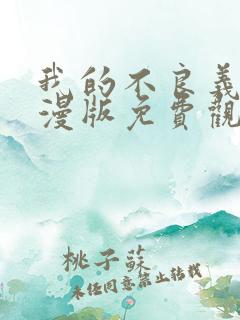 我的不良義
漫版免費觀
桃子蘇
未任同意禁止转载